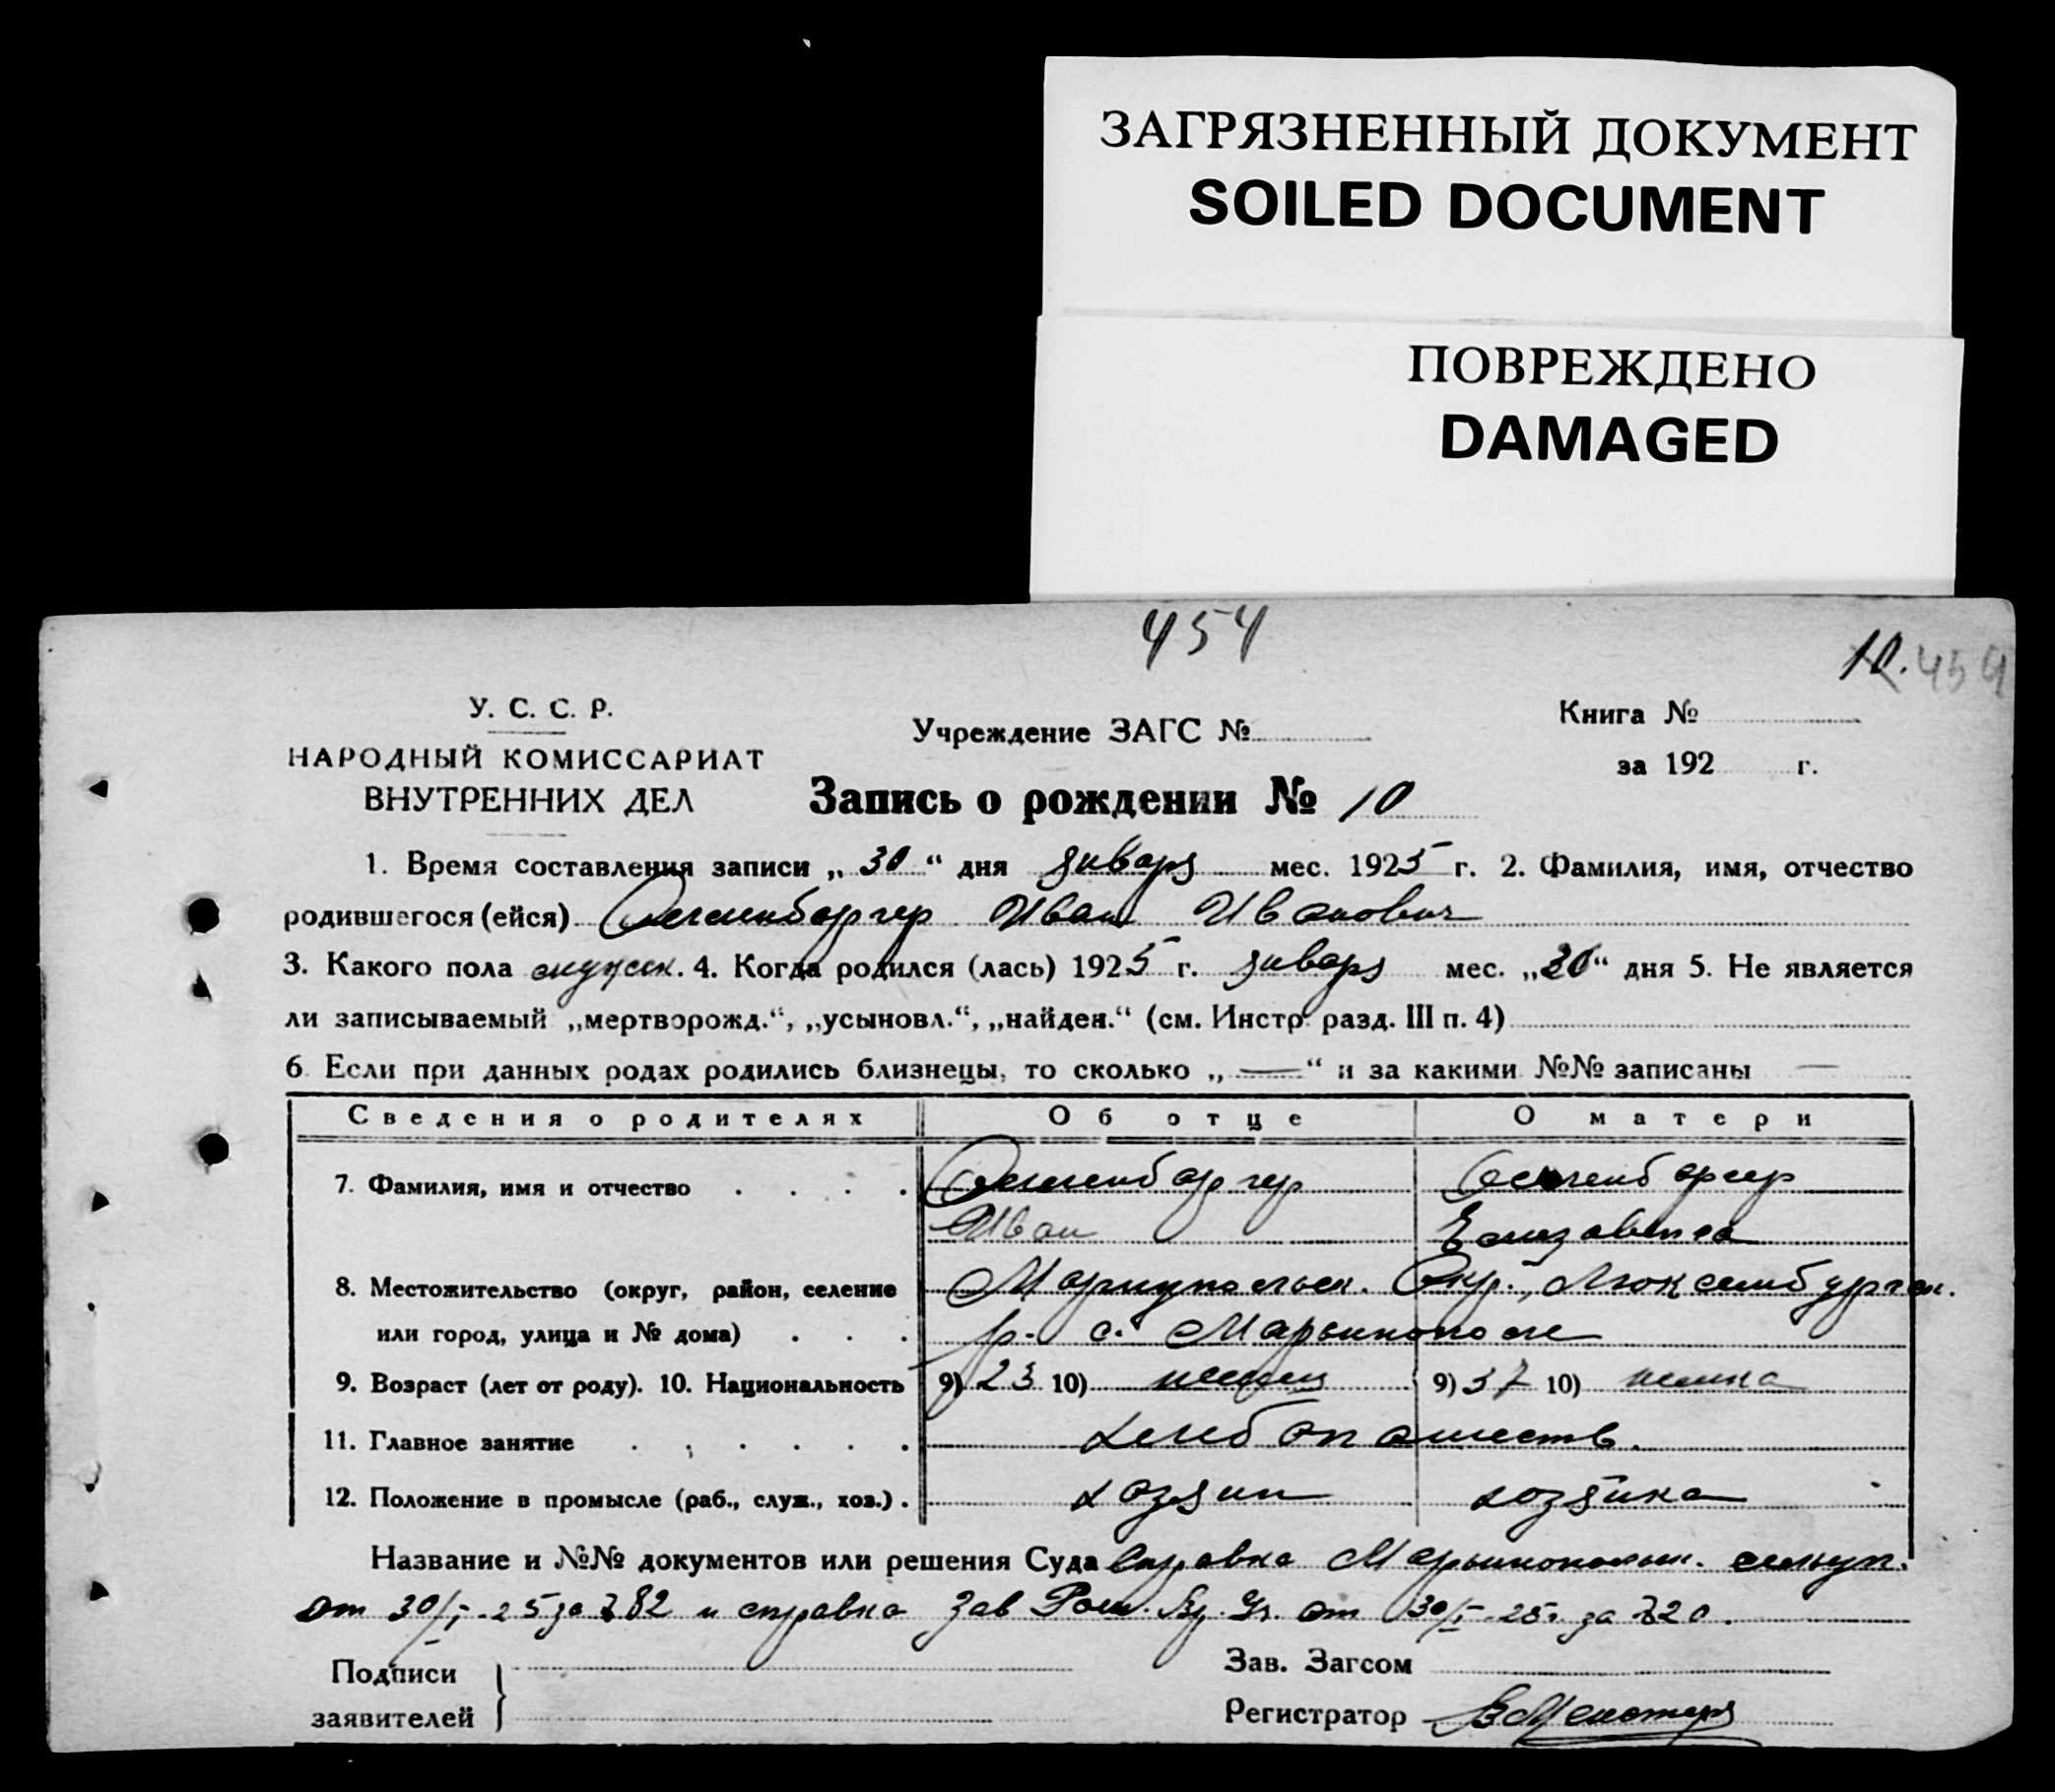 ЗАГРЯЗНЕННЫЙ ДОКУМЕНТ
SOILED DOCUMENT
ПОВРЕЖДЕНО
DAMAGED
454
10. 454
У. С. С. Р.
НАРОДНЫЙ КОМИССАРИАТ
ВНУТРЕННИХ ДЕЛ
Учреждение ЗАГС №
Книга №
за 192 г.
Запись о рождении № 10
1. Время составления записи „30“ дня января мес. 1925 г. 2. Фамилия, имя, отчество
родившегося (ейся) Иван Иванович
3. Какого пола мужск. 4. Когда родился (лась) 1925 г. января мес. „20“ дня 5. Не является
ли записываемый „мертворожд.“, „усыновл.“, „найден.“ (см. Инстр. разд. III п. 4)
6. Если при данных родах родились близнецы, то сколько „—“ и за какими №№ записаны —
Сведения о родителях Об отце О матери
7. Фамилия, имя и отчество
Иван Елизавета
8. Местожительство (округ, район, селение Мариупольск. Окр., Люксембургск.
или город, улица и № дома) р. с. Марьинополе
9. Возраст (лет от роду). 10. Национальность 9) 23 10) немец 9) 37 10) немка
11. Главное занятие хлебопашеств.
12. Положение в промысле (раб., служ., хоз.) хозяин хозяйка
Название и №№ документов или решения Суда Справка Марьинопольск. сельуп.
от 30/I-25 за № 82 и справка Зав от 30/I-25г. за № 20.
Подписи
заявителей
Зав. Загсом
Регистратор